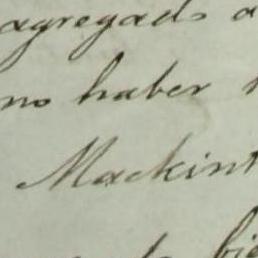 agregado a
no haber
Mackint